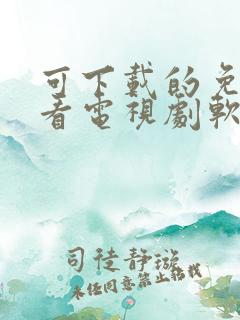 可下載的免
看電視劇軟
司徒靜璇
未经同意禁止转载